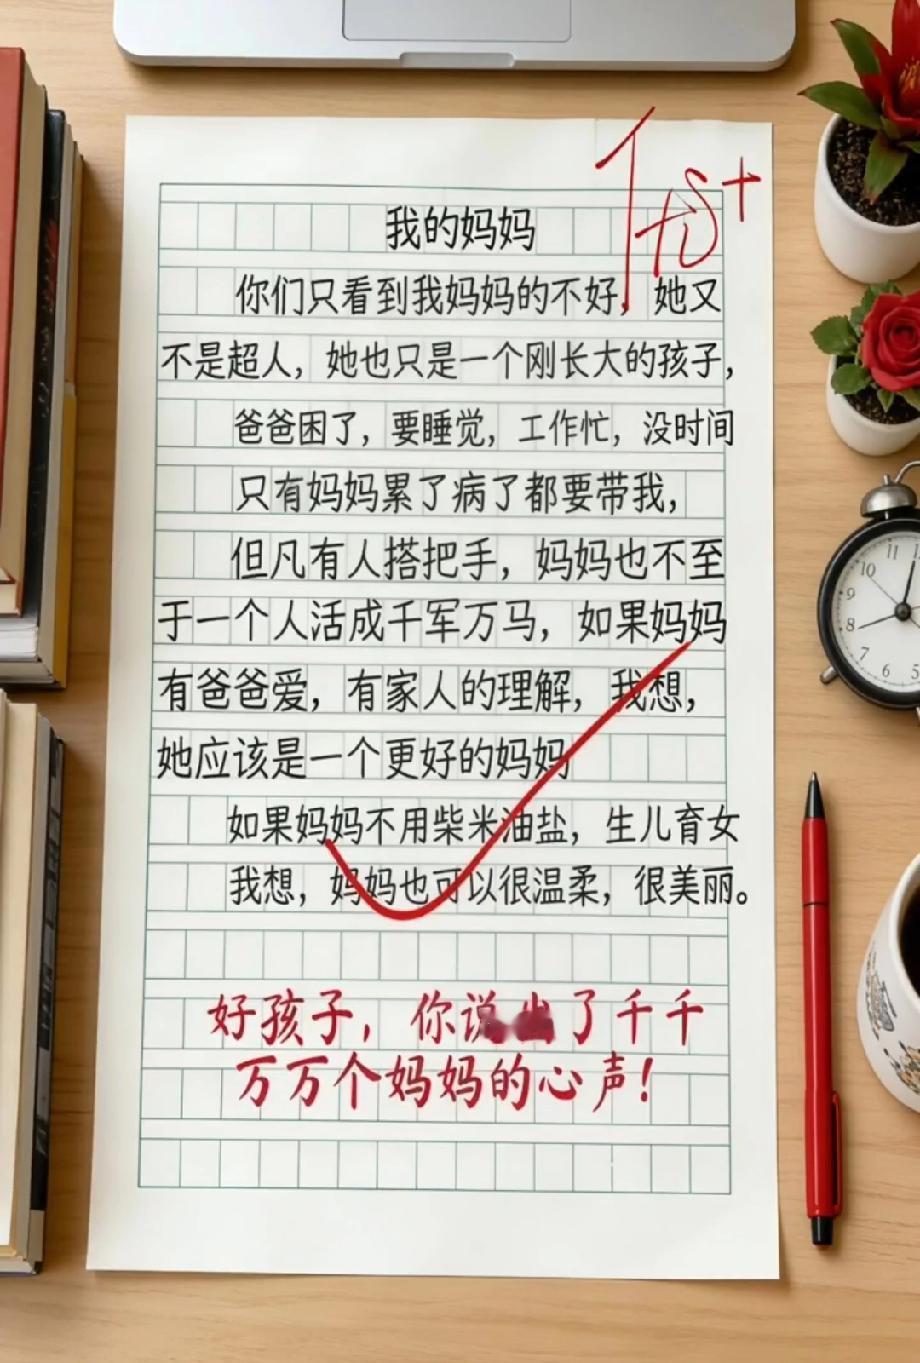 我的妈妈
你们只看到我妈妈的不好，她又
不是超人，她也只是一个刚长大的孩子，
爸爸困了，要睡觉，工作忙，没时间
只有妈妈累了病了都要带我，
但凡有人搭把手，妈妈也不至
于一个人活成千军万马，如果妈妈
有爸爸爱，有家人的理解，我想，
她应该是一个更好的妈妈
如果妈妈不用柴米油盐，生儿育女
我想，妈妈也可以很温柔，很美丽。
好孩子，你说出了千千
万万个妈妈的心声！
11 12
10
9
8
7 6 5